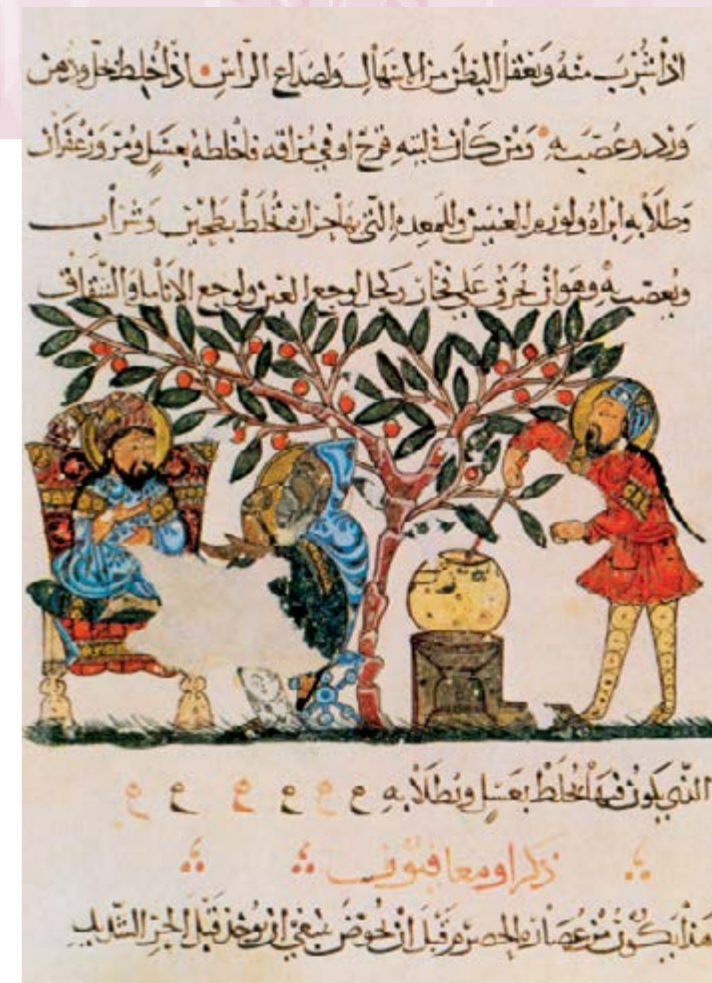 اذا شرب منه ويعقل البطن من الاسهال ولصداع الراس اذا خلط بخل ودهن
ورد وعصب به ومن كان في لثته قرح او في مذاقه فاخلطه بعسل ومر وزعفران
وطلا به ابراه ولوردم العينين وللمعدة التي بها حزازه يخلط بطحين وشراب
ويعصب به وهو ان يحرق على فخار لوجع العين ولوجع
التي يكون فيها يخلط بعسل ويطلا به
ذكر اومفاقيون
هذا يكون من عصارة الحصرم قبل ان يحمض ينبغي ان يوخذ قبل الحر الشديد